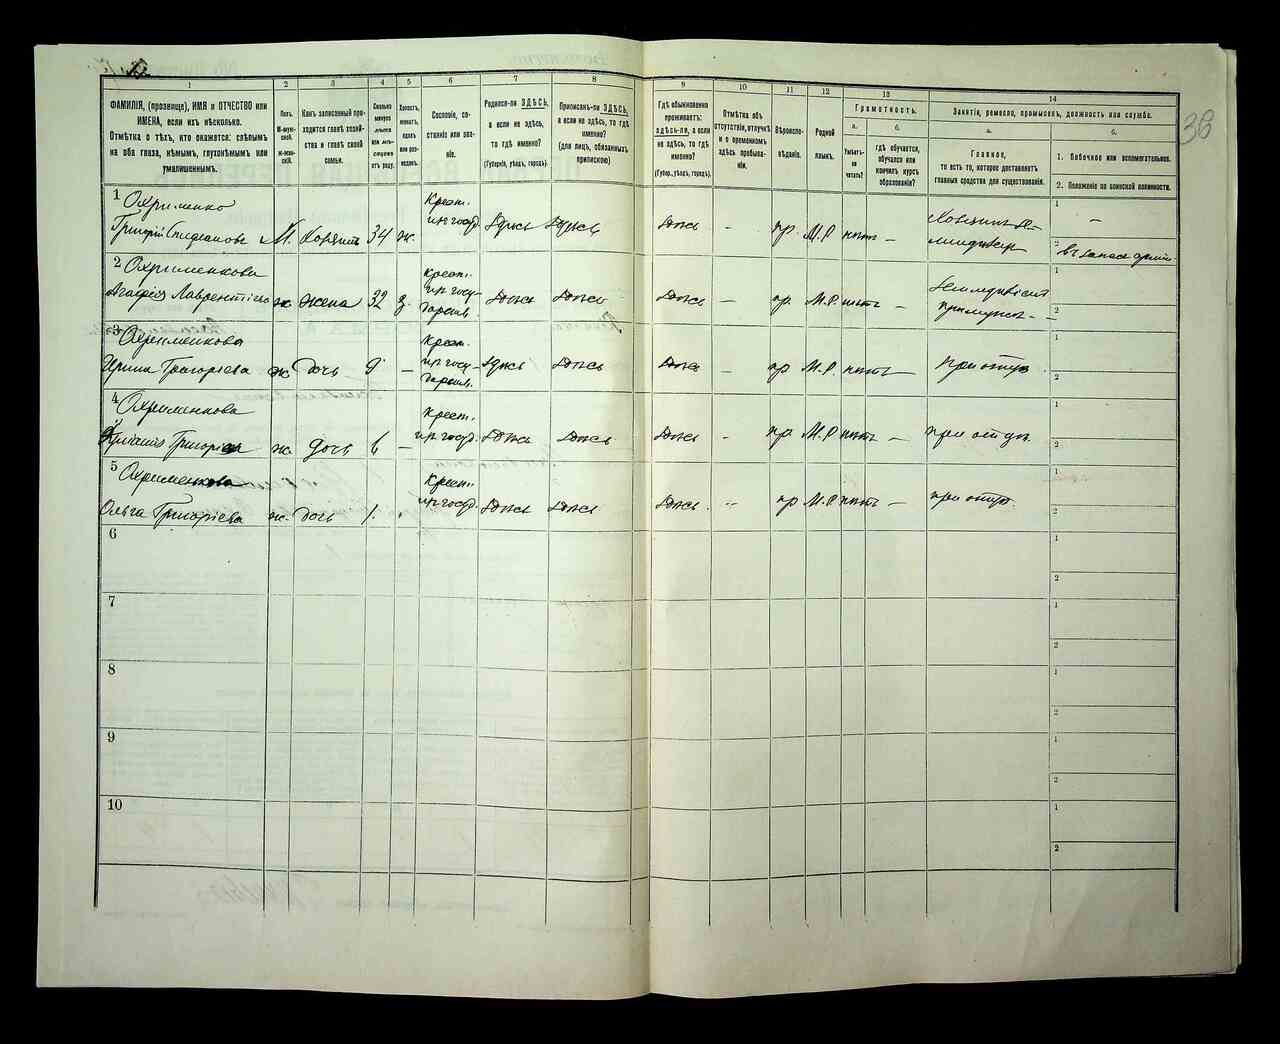 36
1
2
3
4
5
6
7
8
9
10
11
12
13
14
ФАМИЛІЯ, (прозвище), ИМЯ и ОТЧЕСТВО или
ИМЕНА, если ихъ нѣсколько.
Отмѣтка о тѣхъ, кто окажется: слѣпымъ
на оба глаза, нѣмымъ, глухонѣмымъ или
умалишеннымъ.
Полъ.
М-муж-
ской.
Ж-жен-
скій.
Какъ записанный при-
ходится главѣ хозяй-
ства и главѣ своей
семьи.
Сколько
минуло
лѣтъ
или мѣ-
сяцевъ
отъ роду.
Холостъ,
женатъ,
вдовъ
или раз-
веденъ.
Сословіе, со-
стояніе или зва-
ніе.
Родился-ли ЗДѢСЬ,
а если не здѣсь,
то гдѣ именно?
(Губернія, уѣздъ, городъ).
Приписанъ-ли ЗДѢСЬ,
а если не здѣсь, то гдѣ
именно?
(для лицъ, обязанныхъ
припискою)
Гдѣ обыкновенно
проживаетъ:
здѣсь-ли, а если
не здѣсь, то гдѣ
именно?
(Губер., уѣздъ, городъ).
Отмѣтка объ
отсутствіи, отлучкѣ
и о временномъ
здѣсь пребыва-
ніи.
Вѣроиспо-
вѣданіе.
Родной
языкъ.
Грамотность.
а.
Умѣетъ-
ли
читать?
б.
гдѣ обучается,
обучался или
кончилъ курсъ
образованія?
Занятіе, ремесло, промыселъ, должность или служба.
а.
Главное,
то есть то, которое доставляетъ
главныя средства для существованія.
б.
1. Побочное или вспомогательное.
2. Положеніе по воинской повинности.
1 Охрименко
Григорій Стефановъ М. Хозяинъ 34 ж. Крест. из госуд. Здѣсь Здѣсь Здѣсь - пр. М.Р. нѣтъ - Хозяинъ
1 -
2 въ запасѣ арміи
2 Охрименкова
Агафія Лаврентіева ж жена 32 з. Крест. из госу- дарств. Здѣсь Здѣсь Здѣсь - пр. М.Р. нѣтъ -
1
2
3 Охрименкова
Ирина Григоріева ж. дочь 9 - Крест. из госу- дарств. Здѣсь Здѣсь Здѣсь - пр М.Р. нѣтъ - при отцѣ
1
2
4 Охрименкова
Григоріева ж. дочь 6 - Крест. из госуд. Здѣсь Здѣсь Здѣсь - пр. М.Р. нѣтъ - при отцѣ
1
2
5 Охрименкова
Ольга Григоріева ж. дочь 1. Крест. из госуд. Здѣсь Здѣсь Здѣсь - пр М.Р. нѣтъ - при отцѣ
1
2
6
1
2
7
1
2
8
1
2
9
1
2
10
1
2